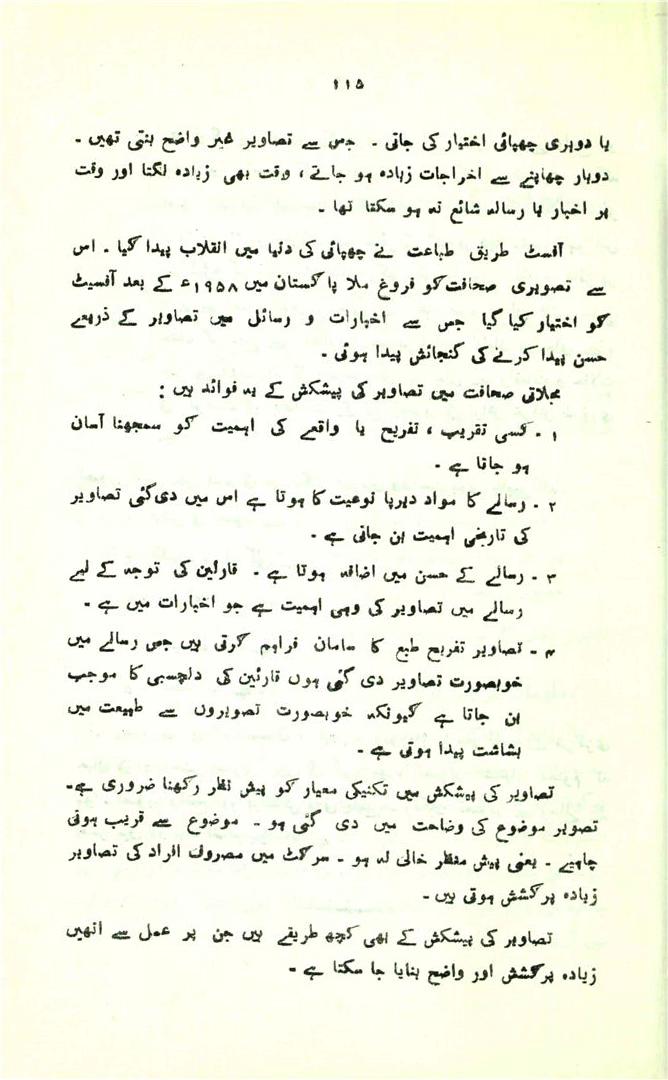 ۱۱۵
یا دوہری چھپائی اختیار کی جاتی ۔ جس سے تصاویر غیر واضح بنتی تھیں ۔
دوبار چھاپنے سے اخراجات زیادہ ہو جاتے ، وقت بھی زیادہ لگتا اور وقت
پر اخبار یا رسالہ شائع نہ ہو سکتا تھا ۔
آفسٹ طریق طباعت نے چھپائی کی دنیا میں انقلاب پیدا کیا ۔ اس
سے تصویری صحافت کو فروغ ملا پاکستان میں ۱۹۵۸ء کے بعد آفسیٹ
کو اختیار کیا گیا جس سے اخبارات و رسائل میں تصاویر کے ذریعے
حسن پیدا کرنے کی گنجائش پیدا ہوئی ۔
مجلاتی صحافت میں تصاویر کی پیشکش کے یہ فوائد ہیں :
۱ ۔ کسی تقریب ، تفریح یا واقعے کی اہمیت کو سمجھنا آسان
ہو جاتا ہے ۔
۲ ۔ رسالے کا مواد دیرپا نوعیت کا ہوتا ہے اس میں دی گئی تصاویر
کی تاریخی اہمیت بن جاتی ہے ۔
۳ ۔ رسالے کے حسن میں اضافہ ہوتا ہے ۔ قارئین کی توجہ کے لیے
رسالے میں تصاویر کی وہی اہمیت ہے جو اخبارات میں ہے ۔
۴ ۔ تصاویر تفریح طبع کا سامان فراہم کرتی ہیں جس رسالے میں
خوبصورت تصاویر دی گئی ہوں قارئین کی دلچسپی کا موجب
بن جاتا ہے کیونکہ خوبصورت تصویروں سے طبیعت میں
بشاشت پیدا ہوتی ہے ۔
تصاویر کی پیشکش میں تکنیکی معیار کو پیش نظر رکھنا ضروری ہے۔
تصویر موضوع کی وضاحت میں دی گئی ہو ۔ موضوع سے قریب ہونی
چاہیے ۔ یعنی پیش منظر خالی نہ ہو ۔ سرکٹ میں مصروف افراد کی تصاویر
زیادہ پرکشش ہوتی ہیں ۔
تصاویر کی پیشکش کے بھی کچھ طریقے ہیں جن پر عمل سے انھیں
زیادہ پرکشش اور واضح بنایا جا سکتا ہے ۔